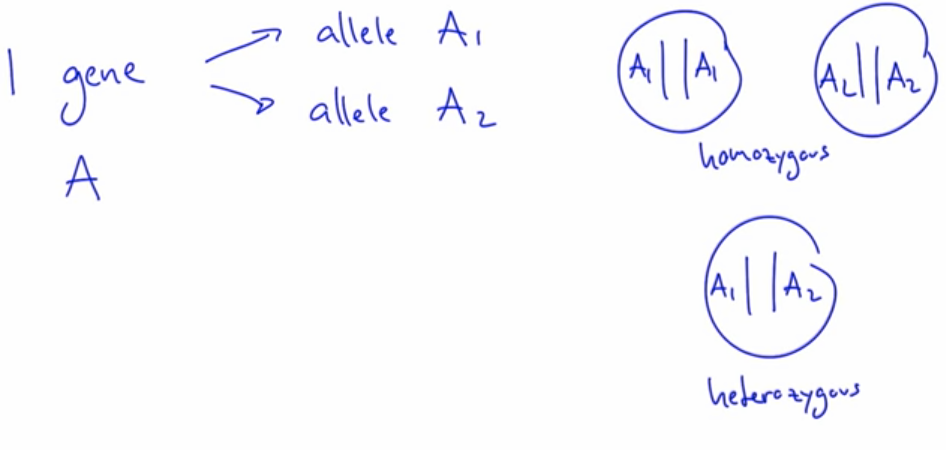 1 gene
A
allele A₁
allele A₂
A₁ || A₁
A₂ || A₂
homozygous
A₁ || A₂
heterozygous